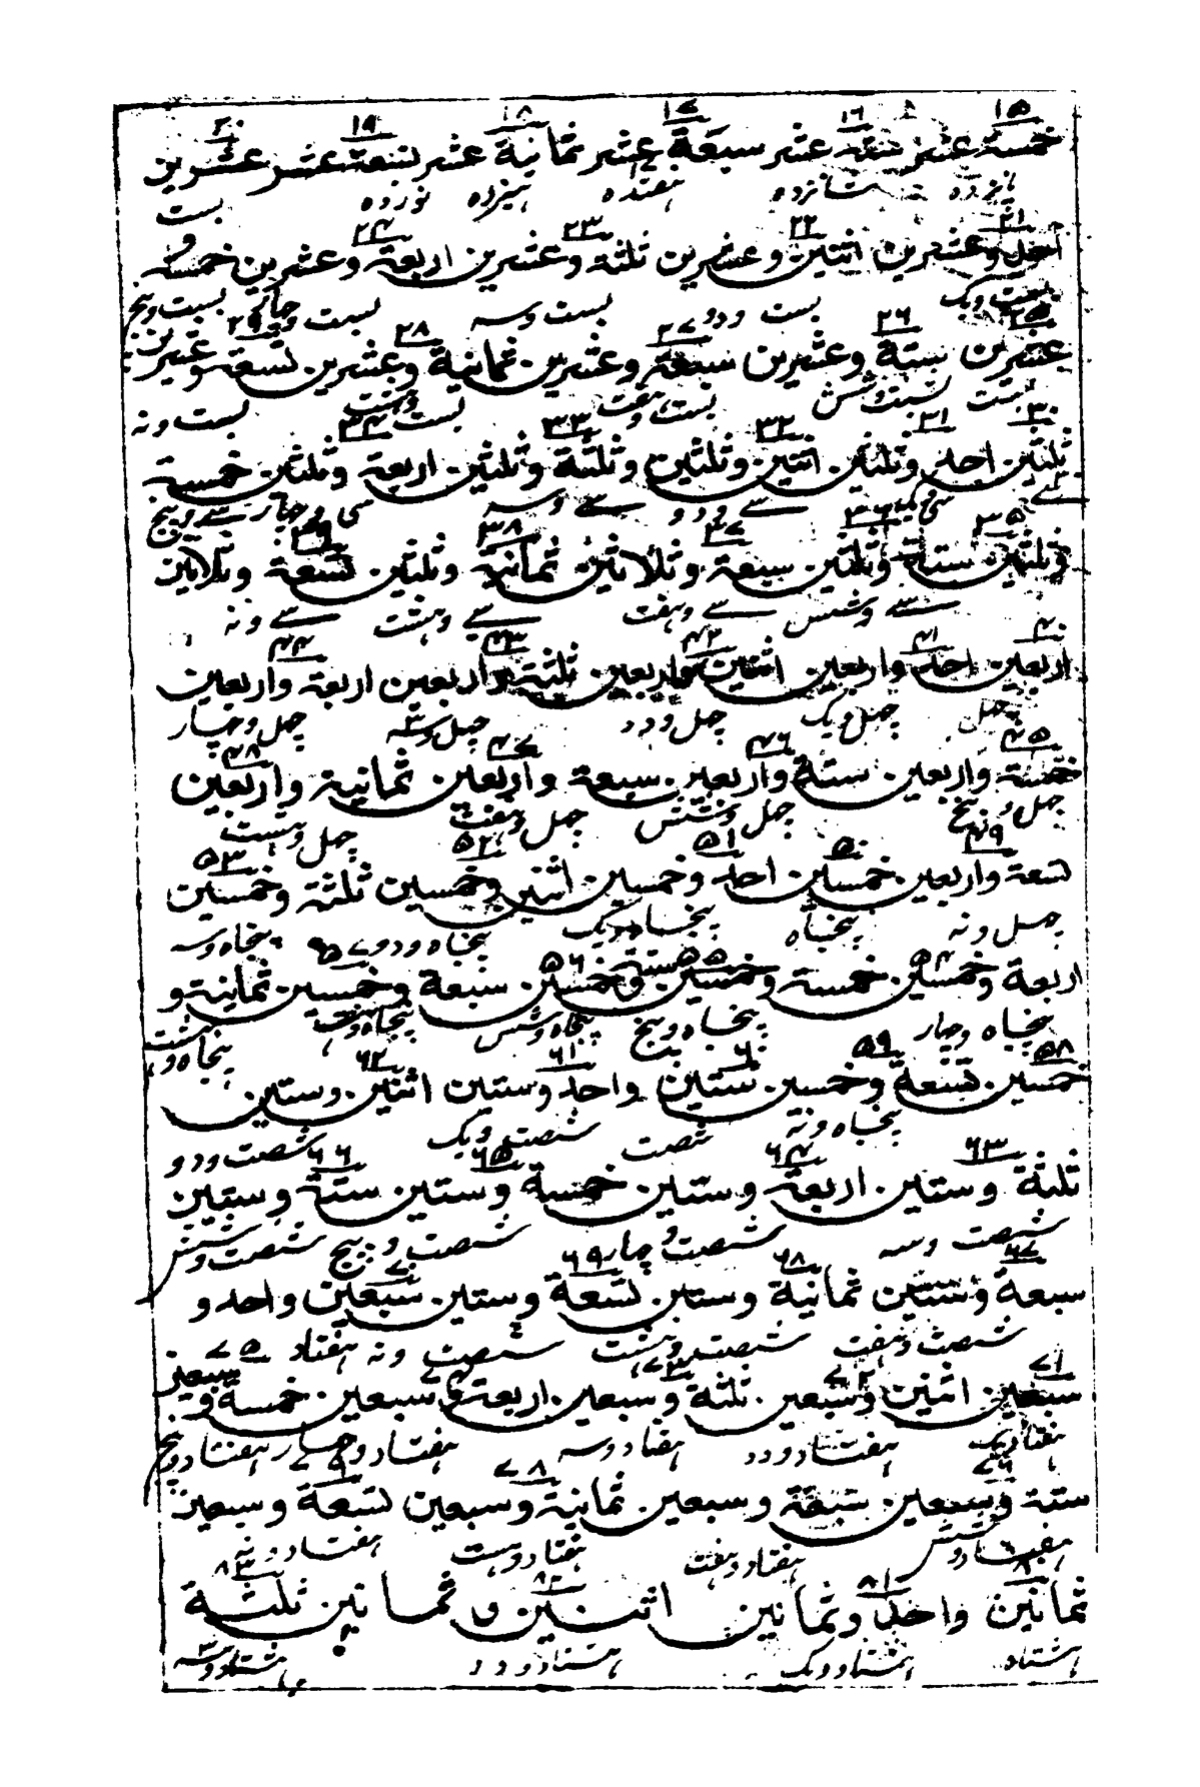 ۱۵ ۱۶ ۱۷ ۱۸ ۱۹ ۲۰
خمسة عشر ستة عشر سبعة عشر ثمانية عشر تسعة عشر عشرين
پانزده شانزده هفتده هیژده نوزده بست
۲۱ ۲۲ ۲۳ ۲۴
احد وعشرين اثنتين وعشرين ثلثة وعشرين اربعة وعشرين خمسة و
بست ویک بست ودو بست وسه بست وچار بست وپنج
۲۵ ۲۶ ۲۷ ۲۸ ۲۹
عشرين ستة وعشرين سبعة وعشرين ثمانية وعشرين تسعة وعشرين
بست وشش بست وهفت بست وهشت بست ونه
۳۰ ۳۱ ۳۲ ۳۳ ۳۴
ثلثين احد وثلثين اثنتين وثلثين وثلثة وثلثين اربعة وثلثين خمسة
سے سی ویک سے ودو سے وسه سی وچار سے وپنج
۳۵ ۳۶ ۳۷ ۳۸ ۳۹
وثلثين ستة وثلثين سبعة وثلاثين ثمانية وثلثين تسعة وثلاثين
سے وشش سے وهفت سے وهشت سے ونه
۴۰ ۴۱ ۴۲ ۴۳ ۴۴
اربعين احد واربعين اثنتين واربعين ثلثة واربعين اربعة واربعين
چهل چهل ویک چهل ودو چهل وسه چهل وچار
۴۵ ۴۶ ۴۷ ۴۸
خمسة واربعين ستة واربعين سبعة واربعين ثمانية واربعين
چهل وپنج چهل وشش چهل وهفت چهل وهشت
۴۹ ۵۰ ۵۱ ۵۲ ۵۳
تسعة واربعين خمسين احد وخمسين اثنين وخمسين ثلثة وخمسين
چهل ونه پنجاه پنجاه ویک پنجاه ودو پنجاه وسه
۵۴ ۵۵ ۵۶ ۵۷
اربعة وخمسين خمسة وخمسين ستة وخمسين سبعة وخمسين ثمانية و
پنجاه وچار پنجاه وپنج پنجاه وشش پنجاه وهفت پنجاه وهشت
۵۸ ۵۹ ۶۰ ۶۱ ۶۲
خمسين تسعة وخمسين ستين واحد وستين اثنين وستين
پنجاه ونه شصت شصت ویک شصت ودو
۶۳ ۶۴ ۶۵ ۶۶
ثلثة وستين اربعة وستين خمسة وستين ستة وستين
شصت وسه شصت وچار شصت وپنج شصت وشش
۶۷ ۶۸ ۶۹ ۷۰
سبعة وستين ثمانية وستين تسعة وستين سبعين واحد و
شصت وهفت شصت وهشت شصت ونه هفتاد
۷۱ ۷۲ ۷۳ ۷۴ ۷۵
سبعين اثنين وسبعين ثلثة وسبعين اربعة وسبعين خمسة وسبعين
هفتاد ویک هفتاد ودو هفتاد وسه هفتاد وچهار هفتاد وپنج
۷۶ ۷۸ ۷۹
ستة وسبعين سبعة وسبعين ثمانية وسبعين تسعة وسبعين
هفتاد وشش هفتاد وهفت هفتاد وهشت هفتاد ونه
۸۰ ۸۱ ۸۲ ۸۳
ثمانين واحد وثمانين اثنين و ثمانين ثلثة
هشتاد هشتاد ویک هشتاد ودو هشتاد وسه